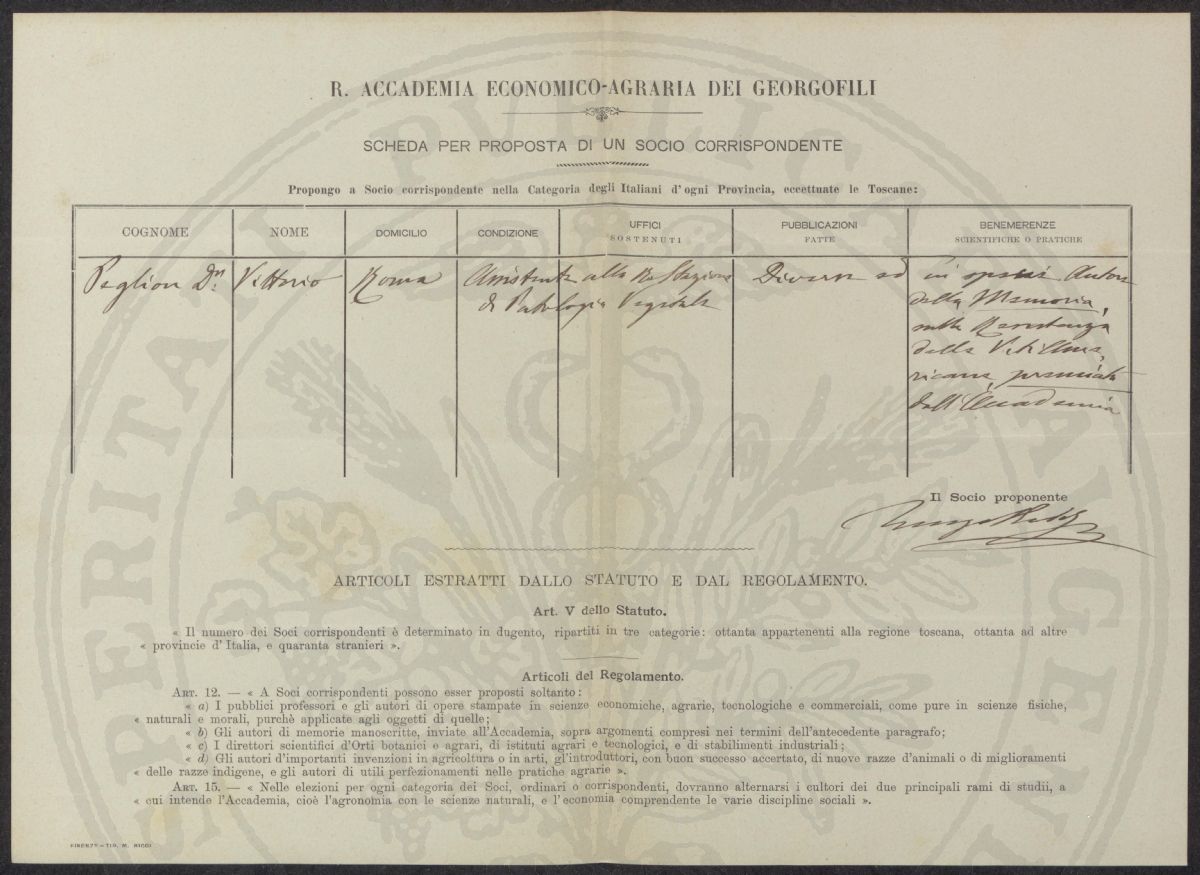 R. ACCADEMIA ECONOMICO-AGRARIA DEI GEORGOFILI
SCHEDA PER PROPOSTA DI UN SOCIO CORRISPONDENTE
Propongo a Socio corrispondente nella Categoria degli Italiani d'ogni Provincia, eccettuate le Toscane:
COGNOME NOME DOMICILIO CONDIZIONE UFFICI SOSTENUTI PUBBLICAZIONI FATTE BENEMERENZE SCIENTIFICHE O PRATICHE
Peglion Dr. Vittorio Roma Assistente alla R. Stazione
di Patologia Vegetale
Diverse ed in Autore
della Memoria,
sulla Resistenza
della Viti Ame
ricane, premiata
dall'Accademia
Il Socio proponente
ARTICOLI ESTRATTI DALLO STATUTO E DAL REGOLAMENTO.
Art. V dello Statuto.
« Il numero dei Soci corrispondenti è determinato in dugento, ripartiti in tre categorie: ottanta appartenenti alla regione toscana, ottanta ad altre
« provincie d'Italia, e quaranta stranieri ».
Articoli del Regolamento.
ART. 12. — « A Soci corrispondenti possono esser proposti soltanto:
« a) I pubblici professori e gli autori di opere stampate in scienze economiche, agrarie, tecnologiche e commerciali, come pure in scienze fisiche,
« naturali e morali, purchè applicate agli oggetti di quelle;
« b) Gli autori di memorie manoscritte, inviate all'Accademia, sopra argomenti compresi nei termini dell'antecedente paragrafo;
« c) I direttori scientifici d'Orti botanici e agrari, di istituti agrari e tecnologici, e di stabilimenti industriali;
« d) Gli autori d'importanti invenzioni in agricoltura o in arti, gl'introduttori, con buon successo accertato, di nuove razze d'animali o di miglioramenti
« delle razze indigene, e gli autori di utili perfezionamenti nelle pratiche agrarie ».
ART. 15. — « Nelle elezioni per ogni categoria dei Soci, ordinari o corrispondenti, dovranno alternarsi i cultori dei due principali rami di studii, a
« cui intende l'Accademia, cioè l'agronomia con le scienze naturali, e l'economia comprendente le varie discipline sociali ».
FIRENZE – TIP. M. RICCI